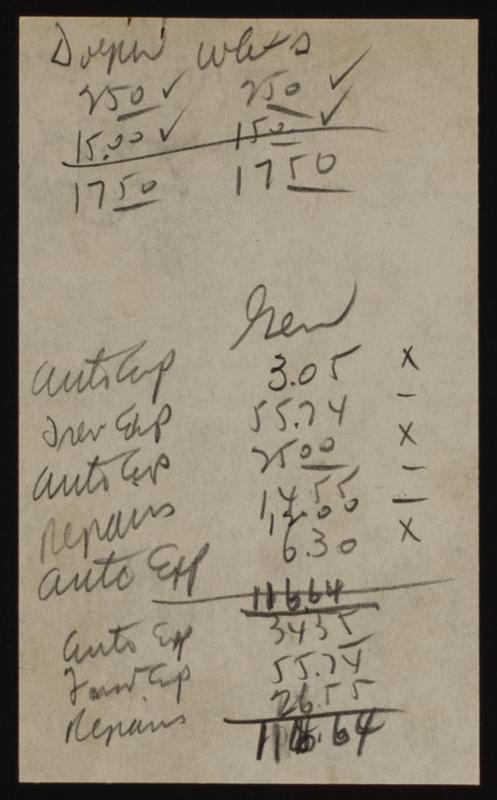 250 ✓ 250 ✓
15.00 ✓ 150 ✓
1750 1750
Auto Exp 3.05 x
Trav Exp 55.74 –
Auto Exp 25 00 x
Repairs 14.55 –
12.00 –
Auto Exp 6.30 x
116.64
Auto Exp 34 35
Trav Exp 55.74
Repairs 26.55
116.64